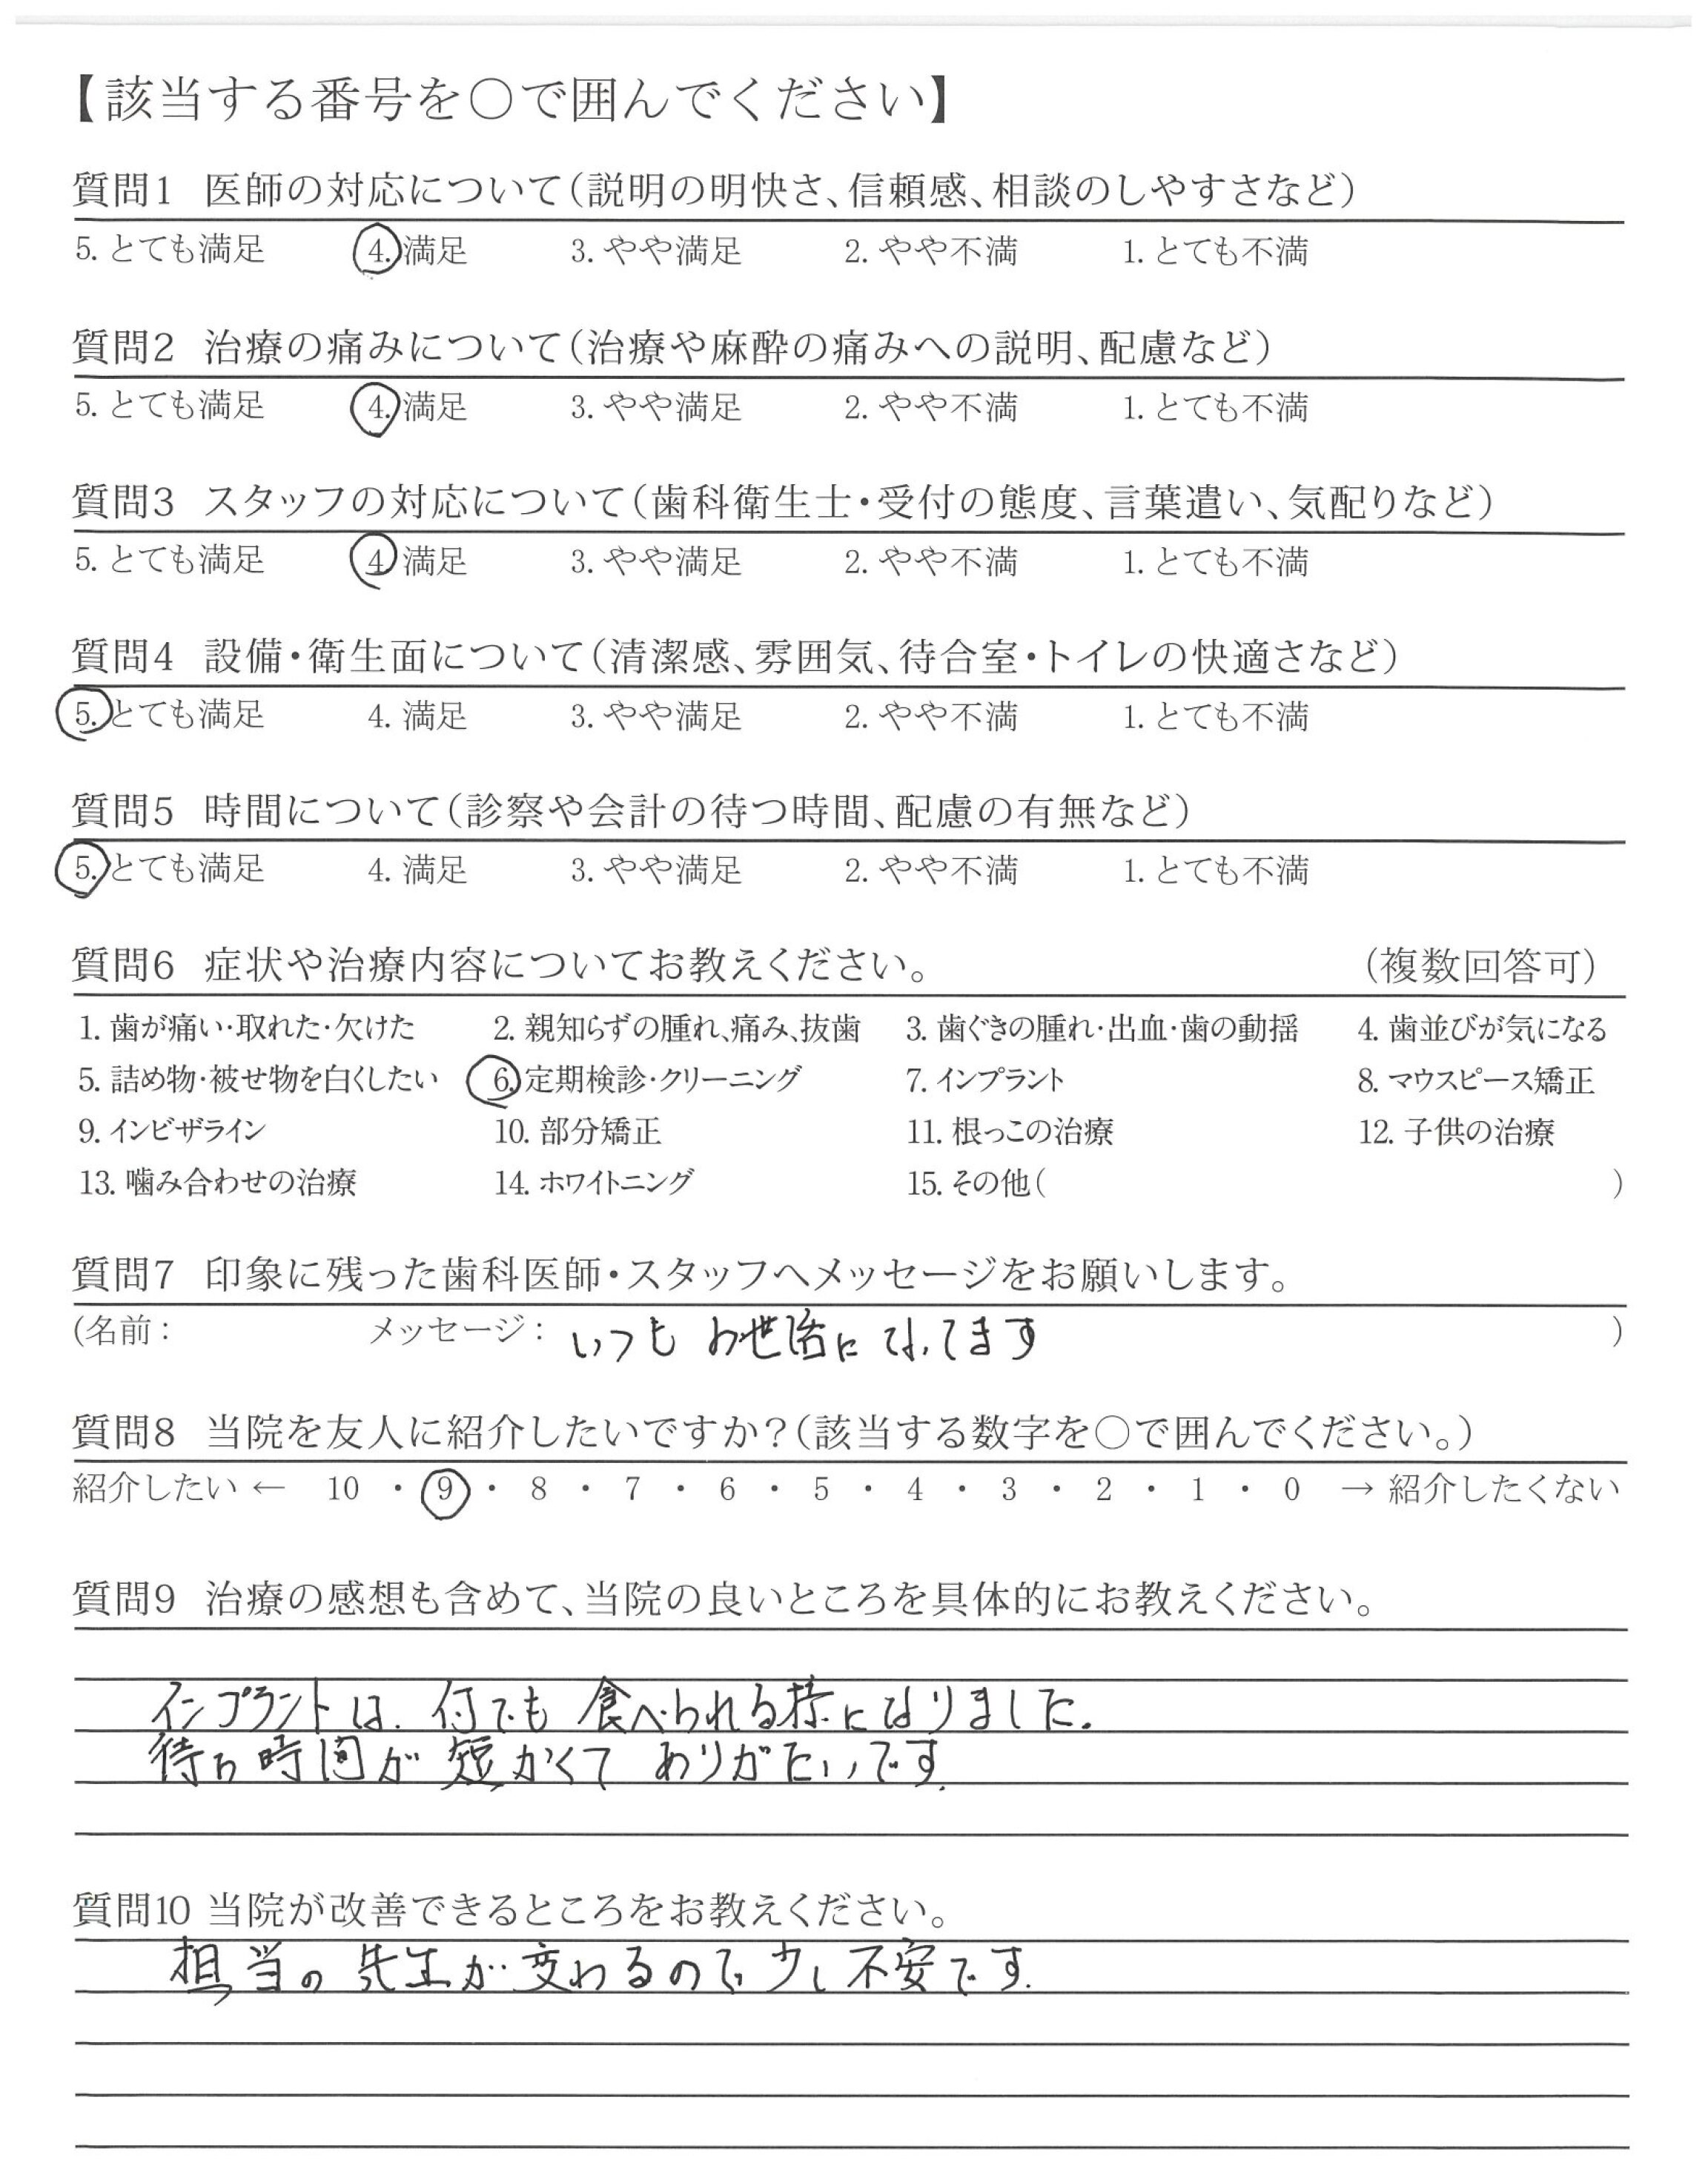 【該当する番号を○で囲んでください】
質問1 医師の対応について(説明の明快さ、信頼感、相談のしやすさなど)
5. とても満足 4. 満足 3. やや満足 2. やや不満 1. とても不満
質問2 治療の痛みについて(治療や麻酔の痛みへの説明、配慮など)
5. とても満足 4. 満足 3. やや満足 2. やや不満 1. とても不満
質問3 スタッフの対応について(歯科衛生士・受付の態度、言葉遣い、気配りなど)
5. とても満足 4 満足 3. やや満足 2. やや不満 1. とても不満
質問4 設備・衛生面について(清潔感、雰囲気、待合室・トイレの快適さなど)
5. とても満足 4. 満足 3. やや満足 2. やや不満 1. とても不満
質問5 時間について(診察や会計の待つ時間、配慮の有無など)
5. とても満足 4. 満足 3. やや満足 2. やや不満 1. とても不満
質問6 症状や治療内容についてお教えください。 (複数回答可)
1. 歯が痛い・取れた・欠けた 2. 親知らずの腫れ、痛み、抜歯 3. 歯ぐきの腫れ・出血・歯の動揺 4. 歯並びが気になる
5. 詰め物・被せ物を白くしたい 6. 定期検診・クリーニング 7. インプラント 8. マウスピース矯正
9. インビザライン 10. 部分矯正 11. 根っこの治療 12. 子供の治療
13. 噛み合わせの治療 14. ホワイトニング 15. その他( )
質問7 印象に残った歯科医師・スタッフへメッセージをお願いします。
(名前: メッセージ: いつも お世話に なってます )
質問8 当院を友人に紹介したいですか?(該当する数字を○で囲んでください。)
紹介したい ← 10 ・ 9 ・ 8 ・ 7 ・ 6 ・ 5 ・ 4 ・ 3 ・ 2 ・ 1 ・ 0 → 紹介したくない
質問9 治療の感想も含めて、当院の良いところを具体的にお教えください。
インプラントは、何でも 食べられる様になりました。
待ち時間が 短かくて ありがたいです。
質問10 当院が改善できるところをお教えください。
担当の 先生が 変わるので 少し 不安です.